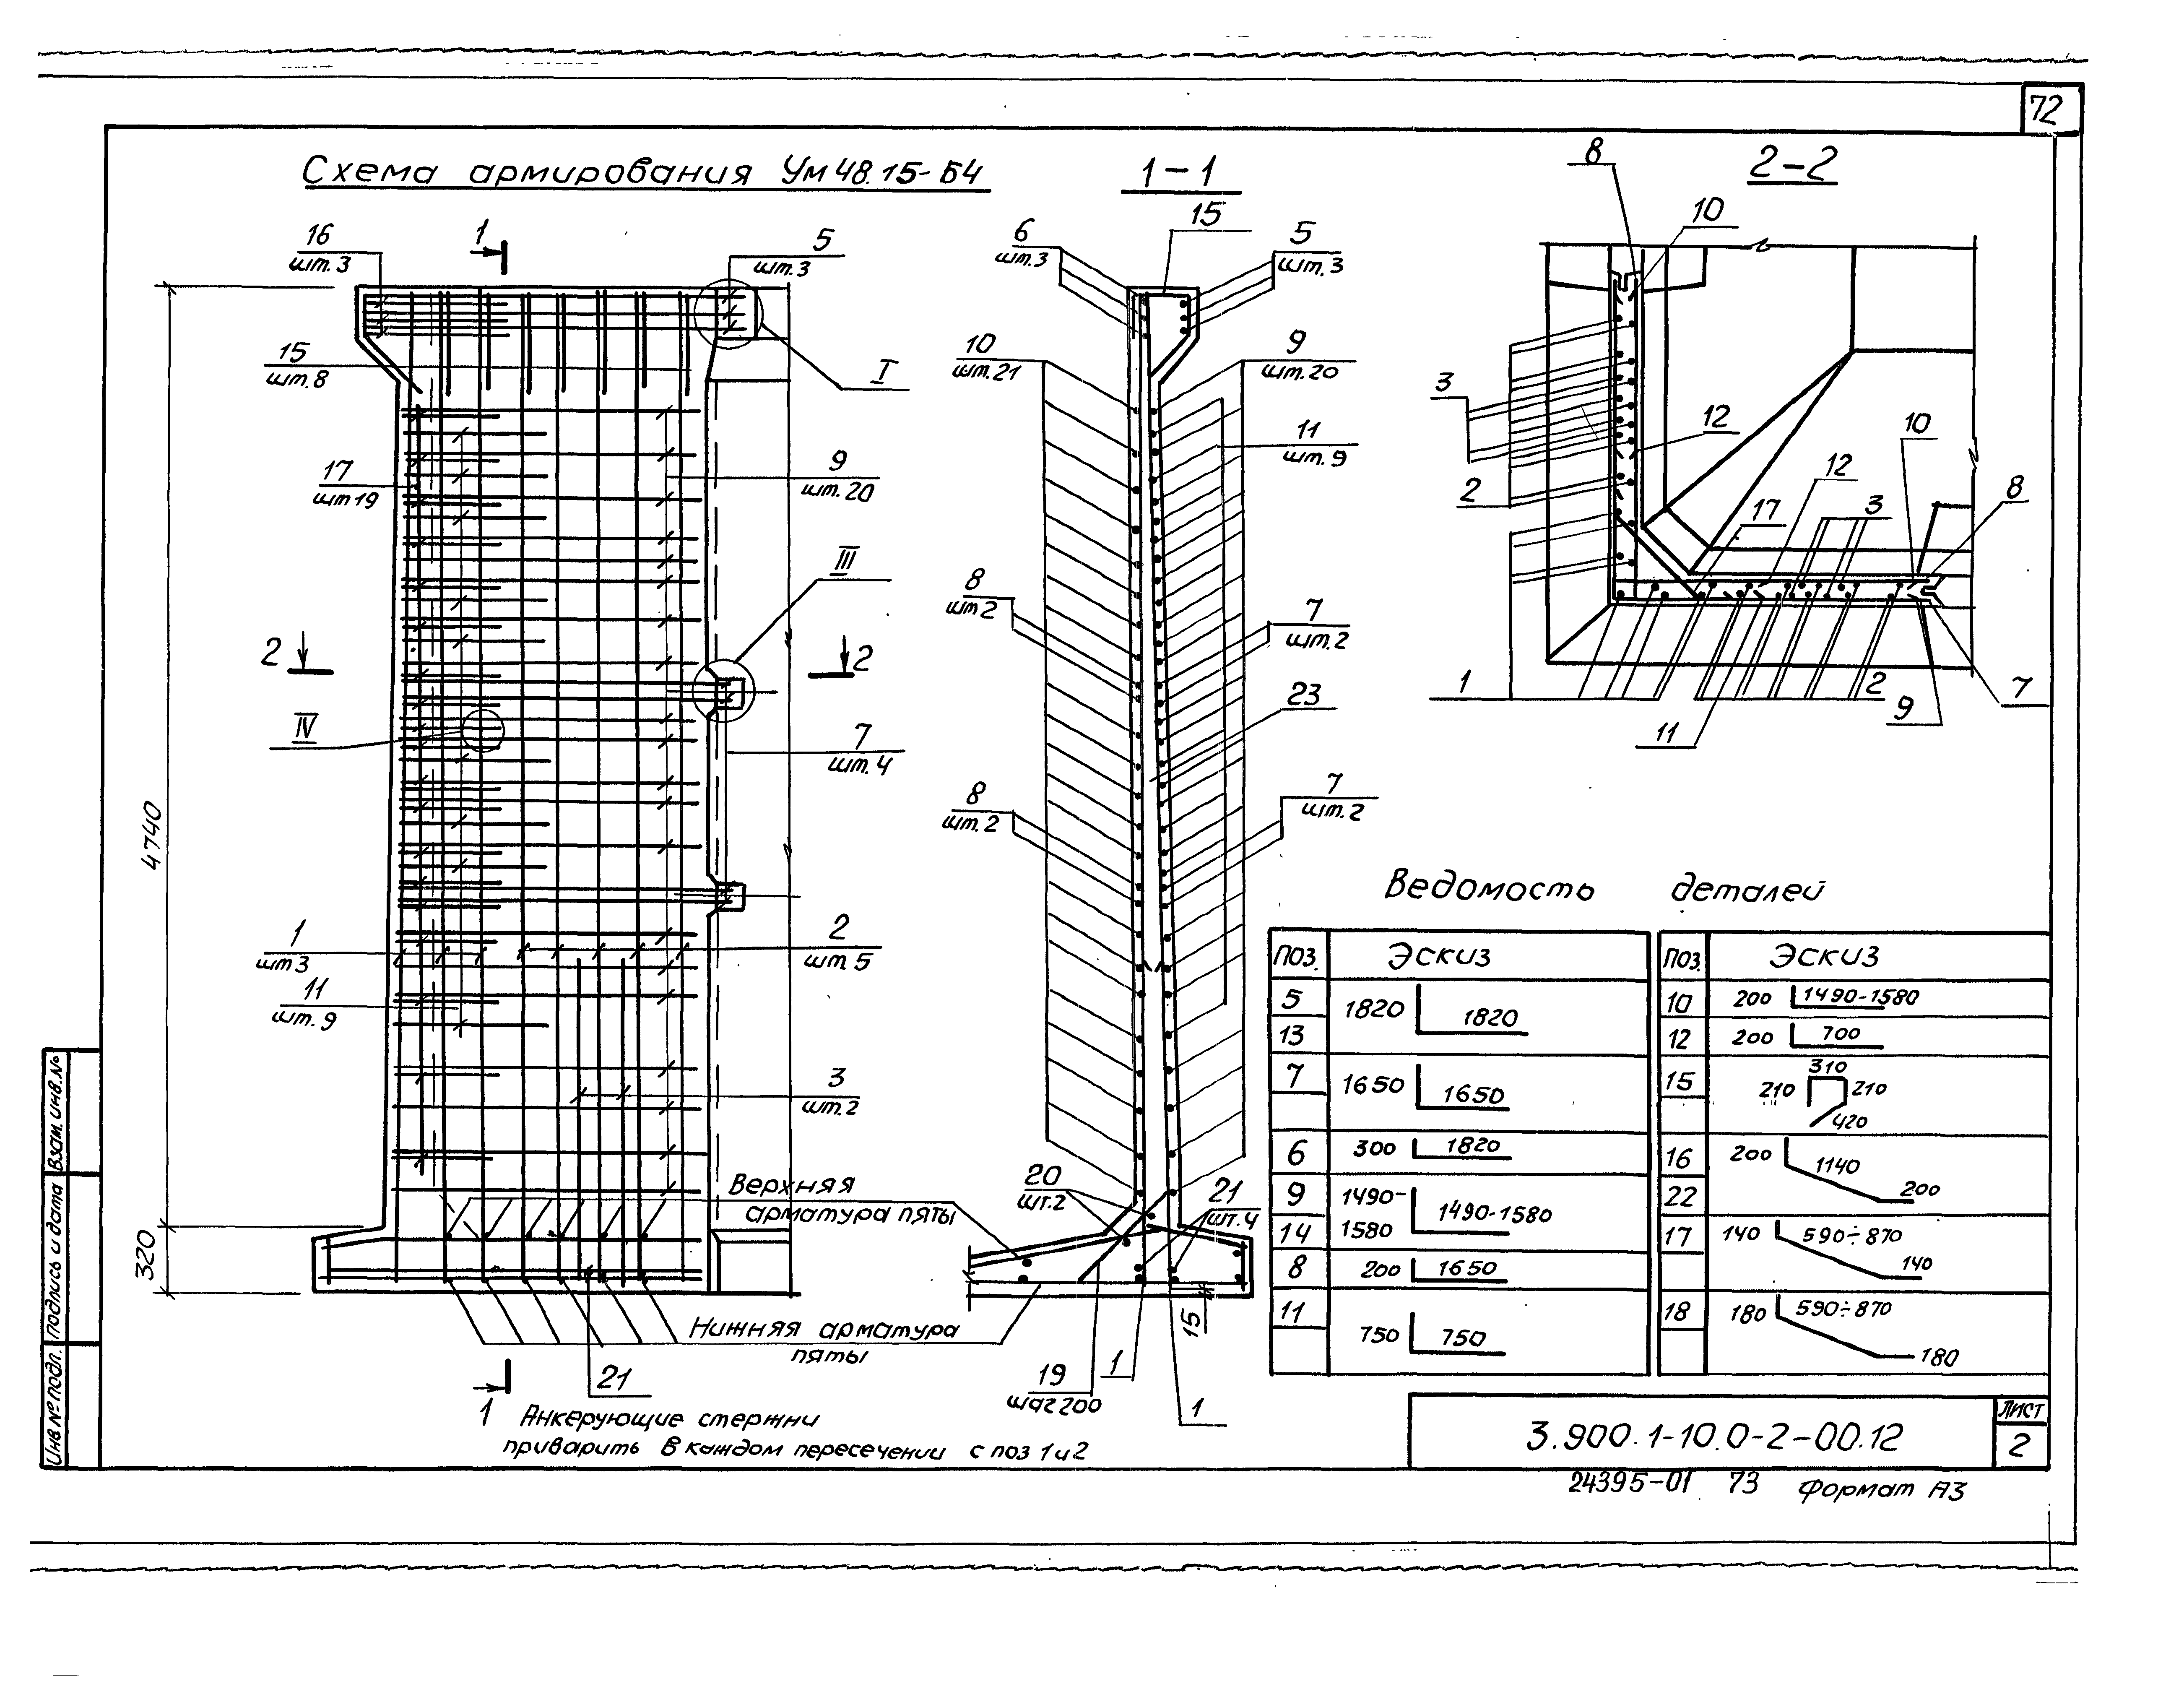 72
Схема армирования Ум 48.15-Б4
1-1
2-2
16
шт.3
1
5
шт.3
15
шт.8
I
17
шт 19
9
шт.20
III
2
2
IV
7
шт.4
4740
1
шт 3
2
шт 5
11
шт.9
3
шт.2
Верхняя
арматура пяты
320
Нижняя арматура
пяты
21
1
Анкерующие стержни
приварить в каждом пересечении с поз 1 и 2
15
6
шт.3
5
шт.3
10
шт.21
9
шт.20
11
шт.9
8
шт 2
7
шт.2
23
8
шт.2
7
шт.2
20
шт.2
21
шт.4
15
19
шаг 200
1
1
8
10
3
12
10
2
12
8
17
3
1
2
7
9
11
Ведомость деталей
Поз. Эскиз
5 1820 1820
13
7 1650 1650
6 300 1820
9 1490- 1490-1580
14 1580
8 200 1650
11 750 750
Поз. Эскиз
10 200 1490-1580
12 200 700
15 310 210 210 420
16 200 1140 200
22
17 140 590÷870 140
18 180 590÷870 180
3.900.1-10.0-2-00.12
Лист
2
24395-01 73 Формат А3
Взам. инв. №
Подпись и дата
Инв № подл.